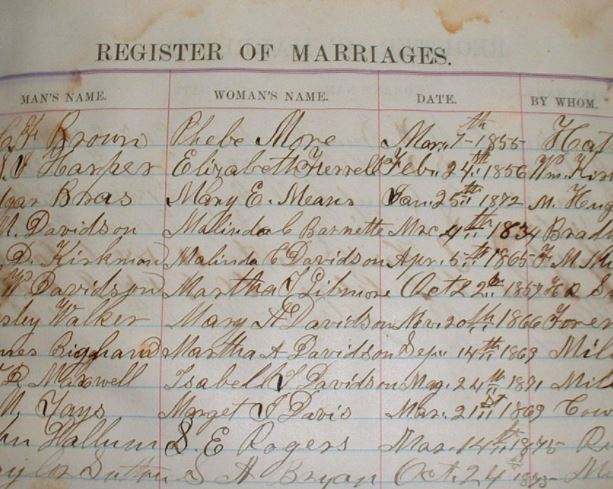 REGISTER OF MARRIAGES.
MAN'S NAME. WOMAN'S NAME. DATE. BY WHOM.
Brown Phebe More Mar. 7th 1855
Harper Elizabeth Ferrell Feb. 24th 1856 Wm.
Bras Mary E. Means Jan. 25th 1872 M. Hug
M. Davidson Malinda C Barnette 4th 1834 Brad
D. Kirkman Malinda C Davidson Apr. 5th 1865
W Davidson Martha J Gilmore Oct 22 1857
sley Walker Mary A Davidson Nov. 20th 1866
mes Martha A Davidson Sep. 14th 1869 Mil
Maxwell Isabell J Davidson 24th 1871 Mil
Tays Marget J Davis Mar. 21st 1869
hn Hallum S. E Rogers Mar. 14th
aylor Sutton S A Bryan Oct. 24